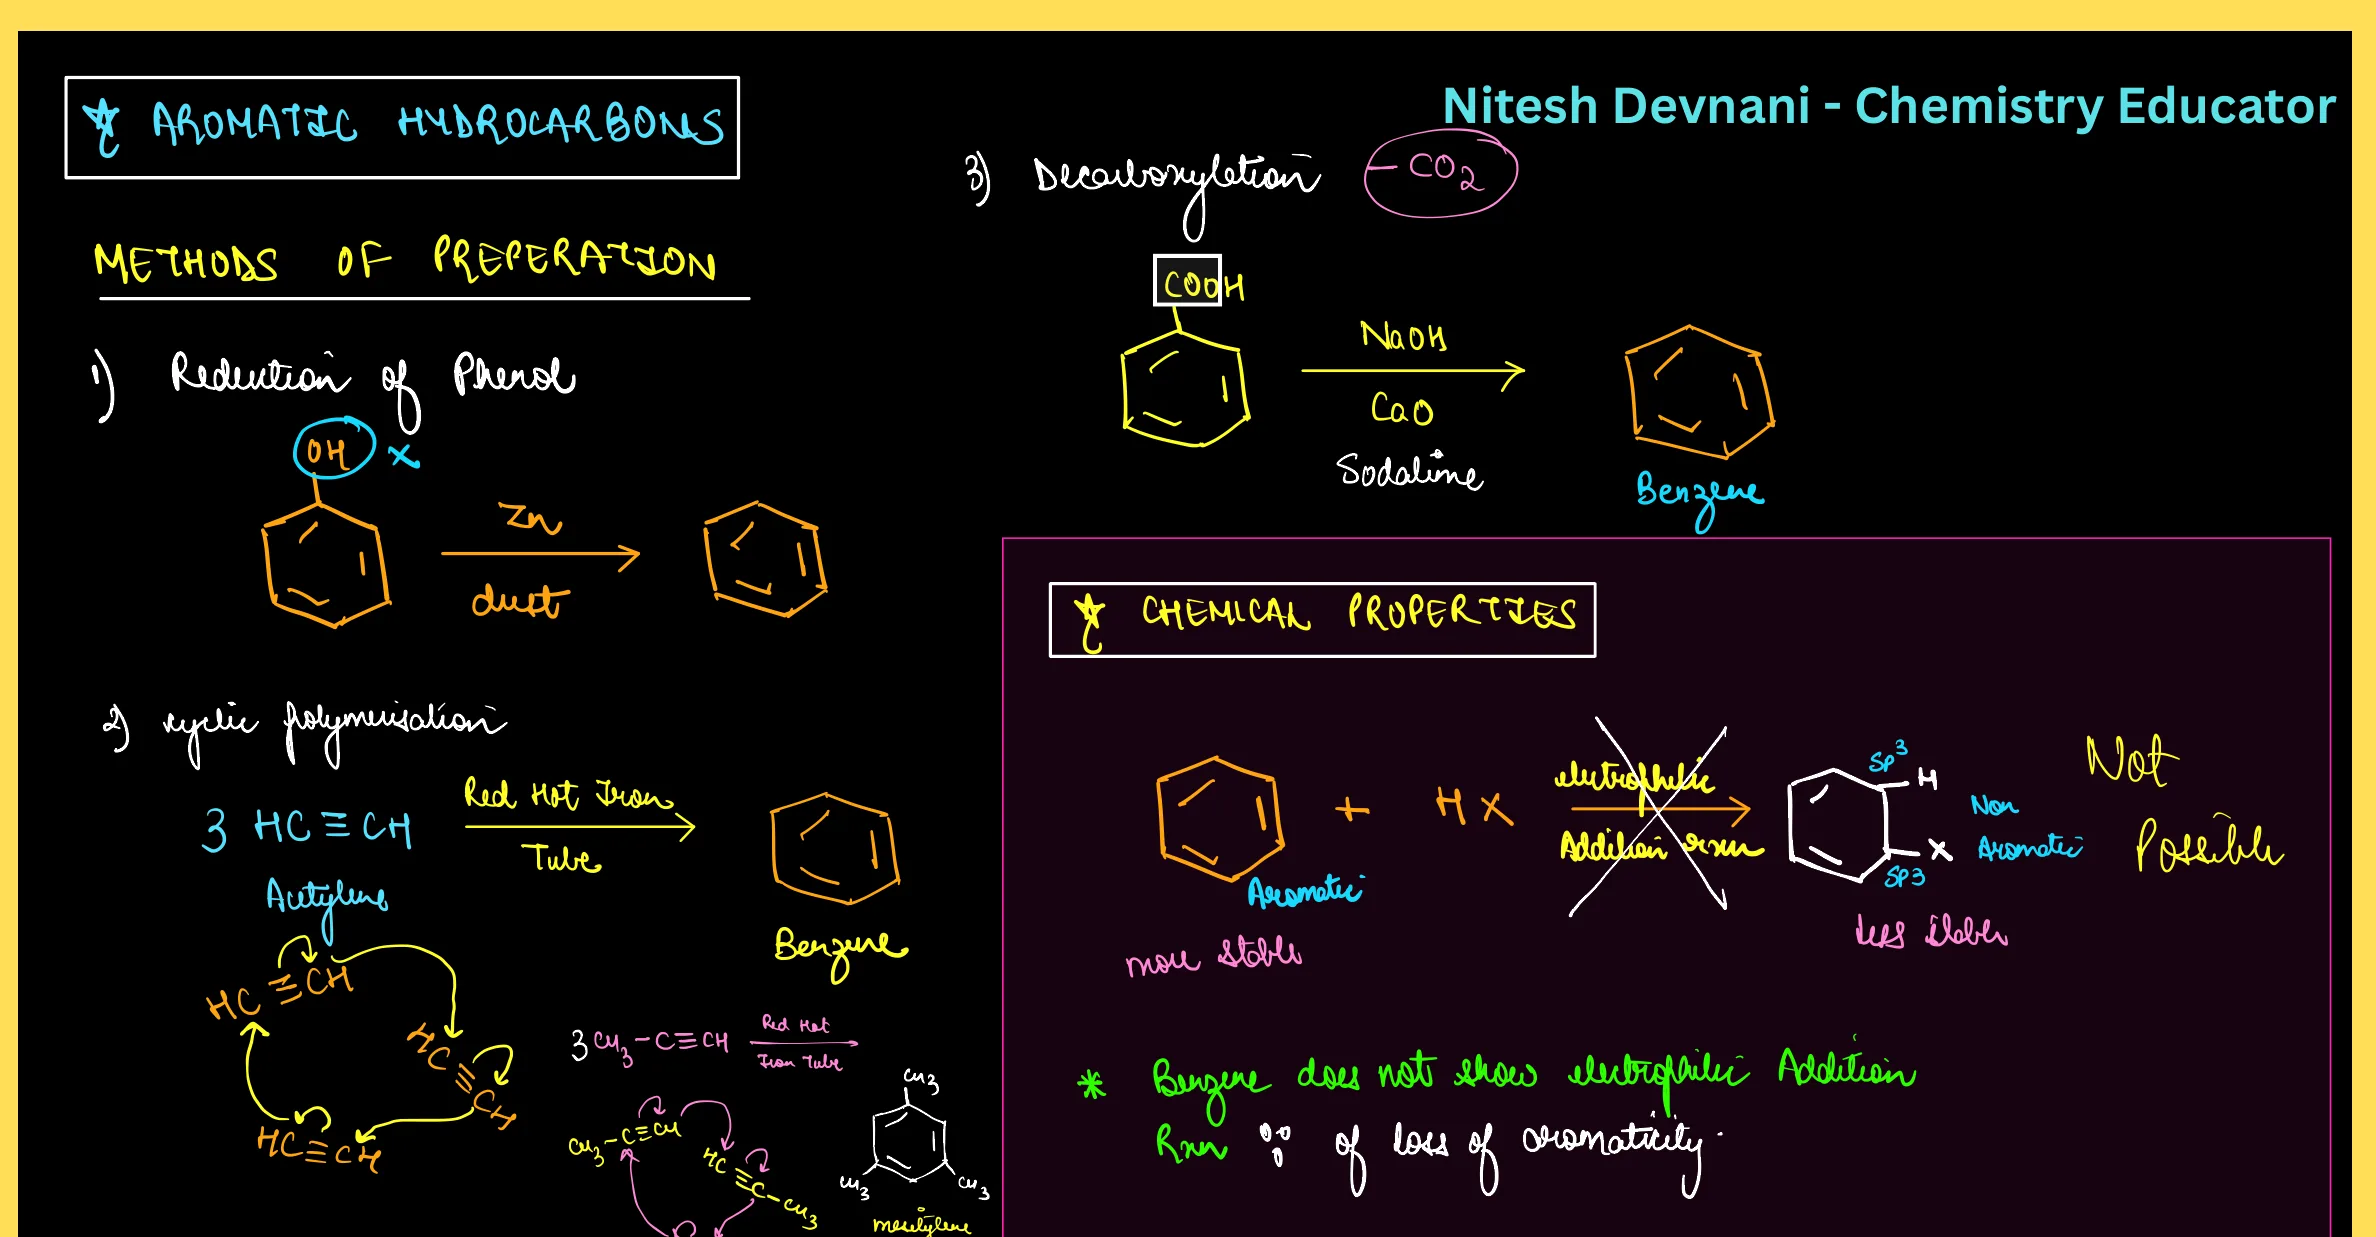 ★ AROMATIC HYDROCARBONS
Nitesh Devnani - Chemistry Educator
METHODS OF PREPERATION
1) Reduction of Phenol
OH x
Zn
dust
2) cyclic polymerisation
3 HC≡CH
Acetylene
Red Hot Iron
Tube
Benzene
HC≡CH
HC≡CH
HC≡CH
3 CH3-C≡CH
Red Hot
Iron Tube
CH3-C≡CH
HC≡C-CH3
CH3
CH3
CH3
mesitylene
3) Decarboxylation - CO2
COOH
NaOH
CaO
Sodalime
Benzene
★ CHEMICAL PROPERTIES
Aromatic
more stable
+ HX
electrophilic
Addition rxn
Sp3
H
X
SP3
Non
Aromatic
less stable
Not
Possible
* Benzene does not show electrophilic Addition
Rxn ∵ of loss of aromaticity.